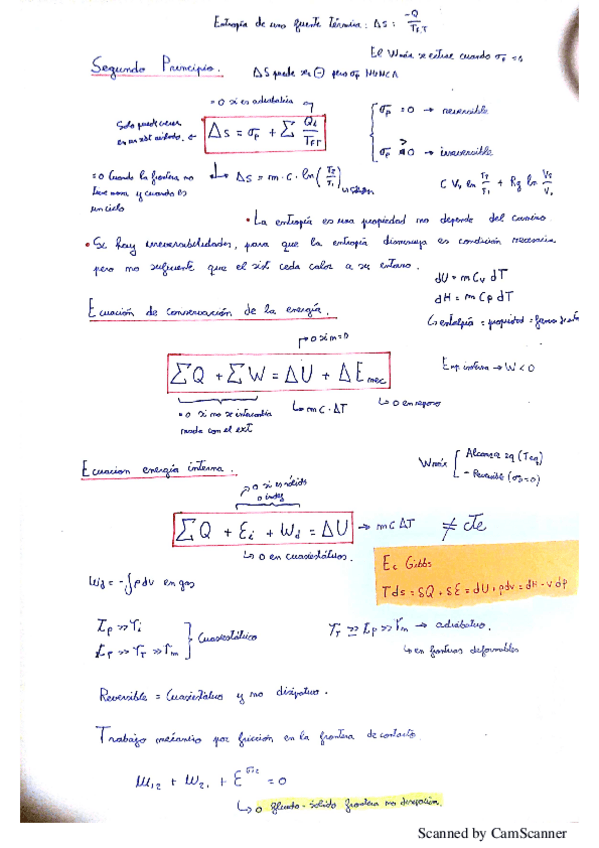 Entropía de una fuente térmica: ΔS = -Q / T_F,T
El Wmáx se extrae cuando σp = 0
Segundo Principio.
ΔS puede ser ⊖ pero σp NUNCA
= 0 si es adiabática
Solo puede crecer en un sist aislado. ←
ΔS = σp + Σ Qi / T_FT
σp = 0 → reversible
σp > 0 → irreversible
= 0 cuando la frontera no
y cuando es
un ciclo
ΔS = m · c · ln (T2 / T1)
C Vs ln T2 / T1 + Rg ln V2 / V1
• La entropía es una propiedad no depende del camino
• Si hay irreversibilidades, para que la entropía disminuya es condición necesaria
pero no suficiente que el sist ceda calor a su entorno.
dU = m Cv dT
dH = m Cp dT
↳ entalpía = propiedad =
Ecuación de conservación de la energía.
→ 0 si m=0
ΣQ + ΣW = ΔU + ΔE mec
→ W < 0
= 0 si no se intercambia
nada con el ext
↳ m C · ΔT
↳ 0 en reposo
Ecuacion energía interna.
Wmáx
Alcanza eq (Teq)
- Reversible (σ=0)
→ 0 si es sólido
ΣQ + Ei + Wd = ΔU → m C ΔT ≠ cte
↳ 0 en cuasiestáticos.
Ec Gibbs
Tds = δQ + δE = dU + pdv = dH - v dp
Wd = -∫ p dv en gas
Cuasiestático
→ adiabático.
↳ en fronteras deformables
Reversible = Cuasiestático y no disipativo.
Trabajo mecánico por fricción en la frontera de contacto.
W12 + W21 + E = 0
↳ 0 fluido-sólido frontera no disipación.
Scanned by CamScanner